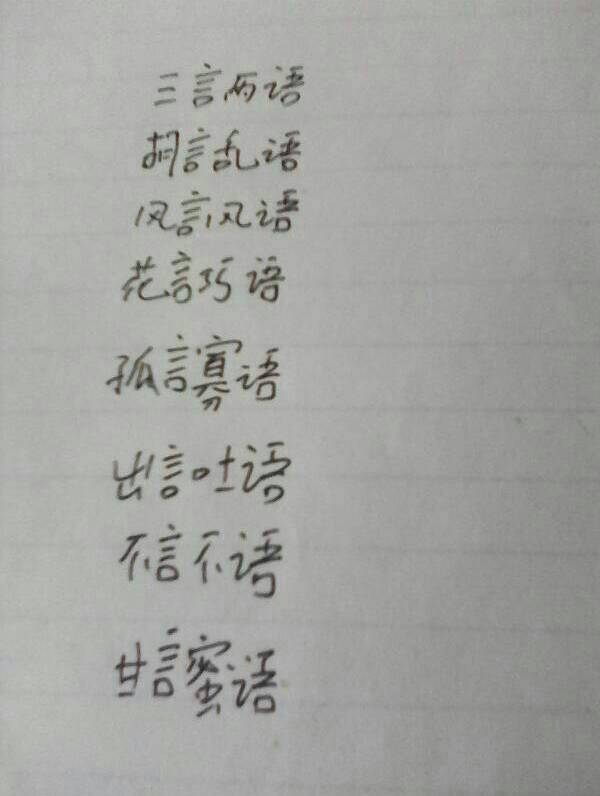 三言两语
胡言乱语
风言风语
花言巧语
孤言寡语
出言吐语
不言不语
甘言蜜语